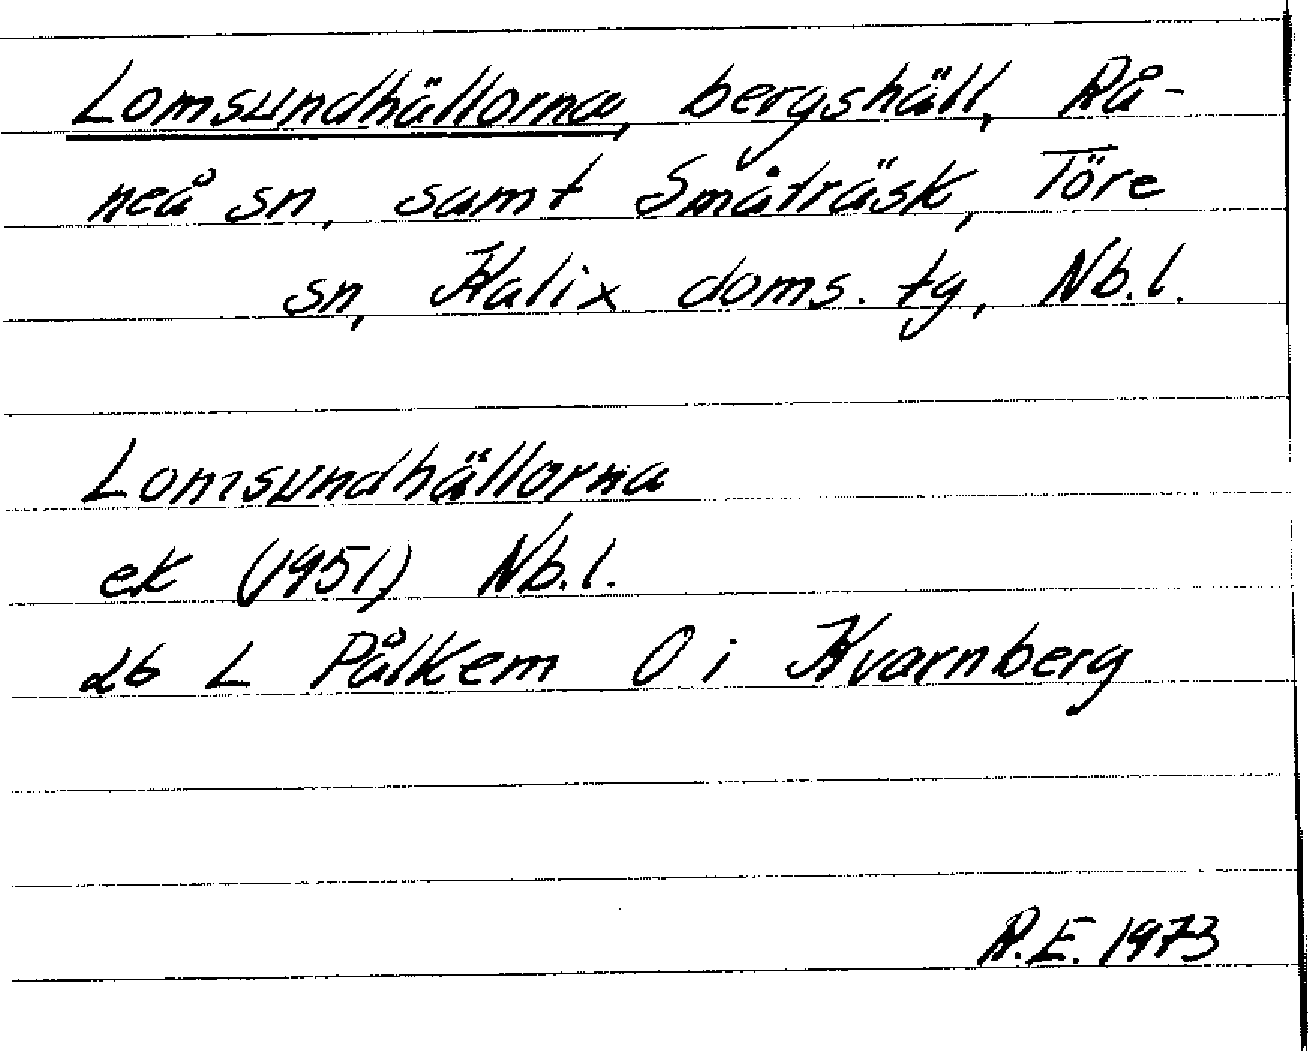 Lomsundhällorna, bergshäll, Rå-
neå sn, samt Småträsk, Töre
sn, Kalix doms. tg, Nb.l.
Lomsundhällorna
ek (1951) Nb.l.
db L Pålkem O i Kvarnberg
R.E. 1973